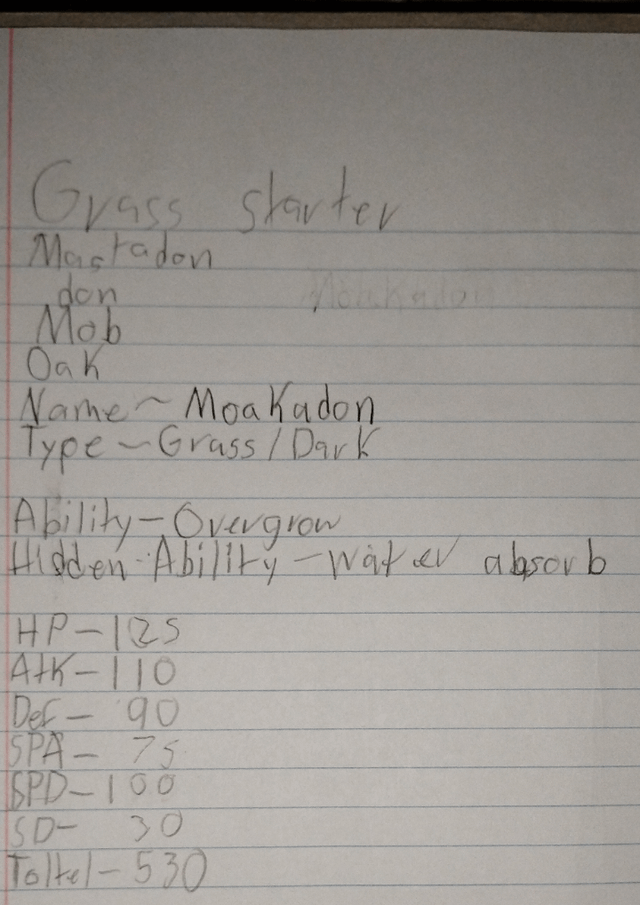 Grass starter
Mastadon
don Moakadon
Mob
Oak
Name ~ Moakadon
Type ~ Grass / Dark
Ability - Overgrow
Hidden Ability - water absorb
HP - 125
Atk - 110
Def - 90
SPA - 75
SPD - 100
SD - 30
Toltel - 530